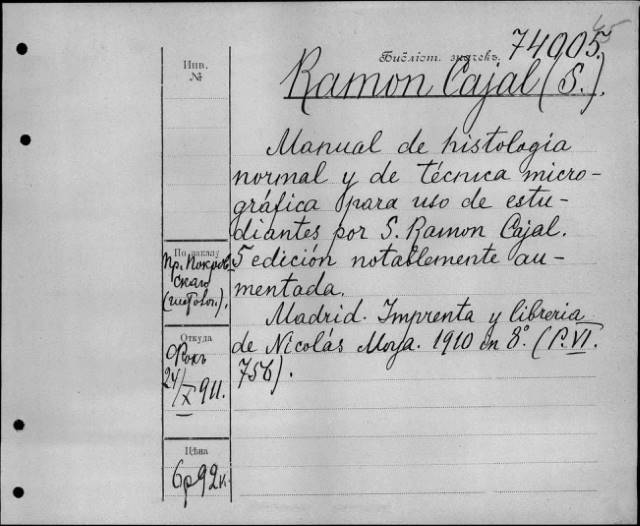 45
74005.
Библіот. значекъ.
Инв.
№
Ramon Cajal (S.).
Manual de histologia
normal y de técnica micro-
gráfica para uso de estu-
diantes por S. Ramon Cajal.
5 edición notablemente au-
mentada.
Madrid. Imprenta y libreria
de Nicolás Moya. 1910 en 8º. (P. VI.
756).
По заказу
Пр. Покров-
скаго
Откуда
Фокъ
24/X 911.
Цѣна
6р 92к.